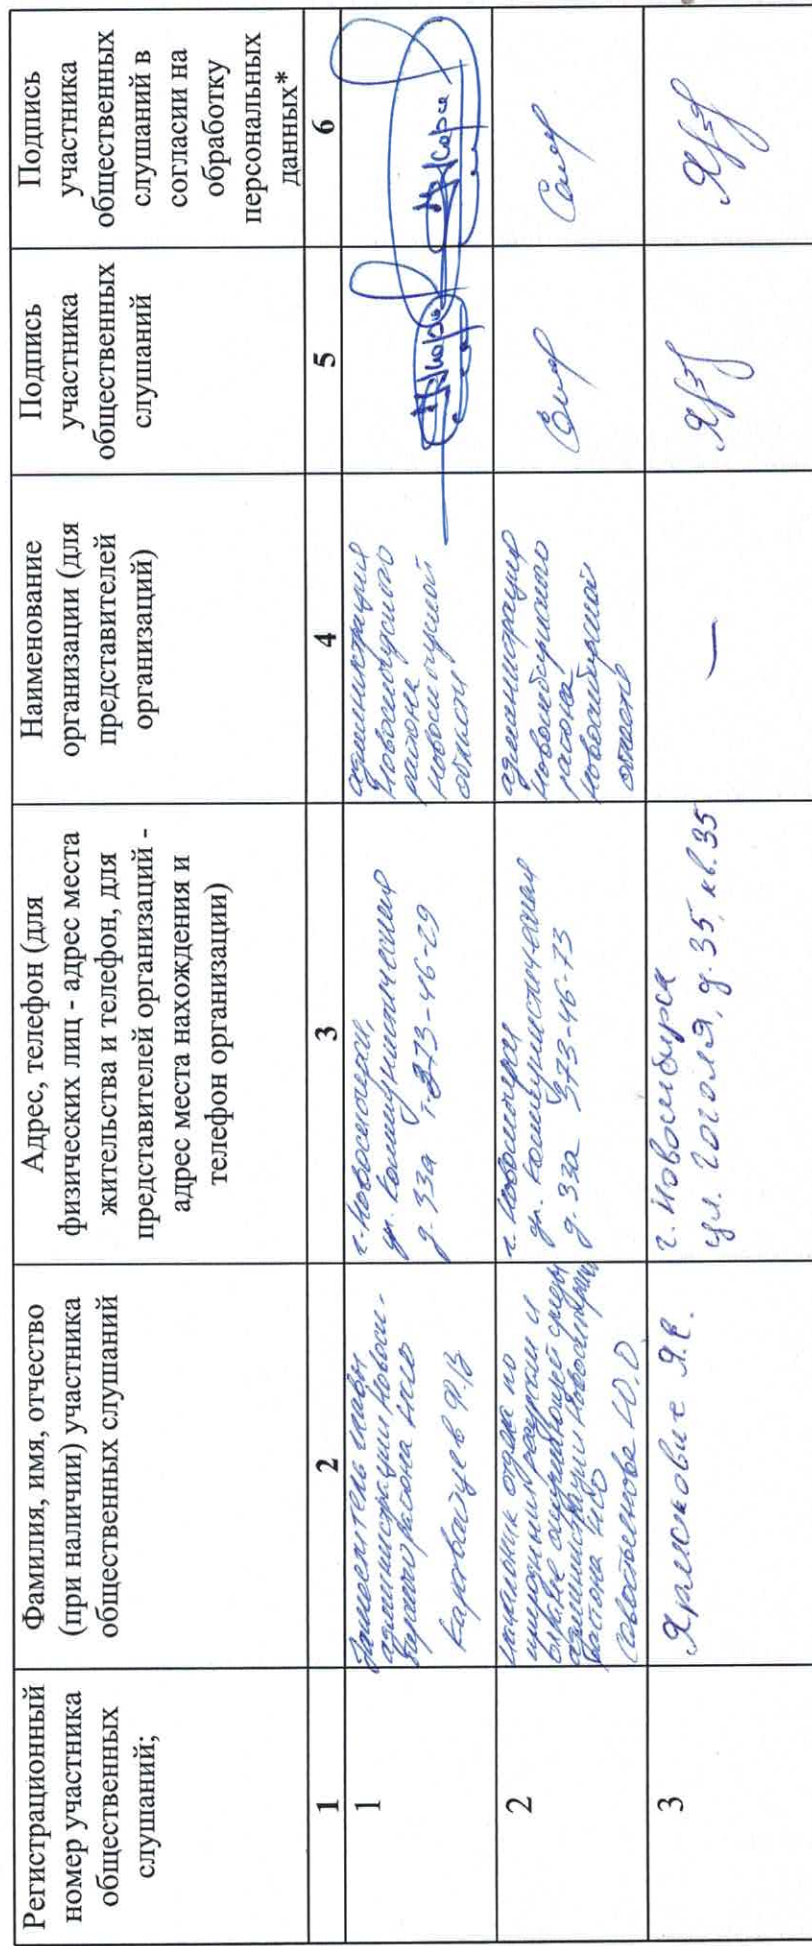 Регистрационный
номер участника
общественных
слушаний;
Фамилия, имя, отчество
(при наличии) участника
общественных слушаний
Адрес, телефон (для
физических лиц - адрес места
жительства и телефон, для
представителей организаций -
адрес места нахождения и
телефон организации)
Наименование
организации (для
представителей
организаций)
Подпись
участника
общественных
слушаний
Подпись
участника
общественных
слушаний в
согласии на
обработку
персональных
данных*
1
2
3
4
5
6
1
Заместитель главы
администрации Новоси-
бирского района НСО
Ф.В
г. Новосибирск,
ул. Коммунистическая
д. 33а т. 373-46-29
администрация
Новосибирского
района
Новосибирской
области
2
начальник отдела по
природным ресурсам и
охране окружающей среды
администрации Новосибирского
района НСО
Ю.О.
г. Новосибирск
ул. Коммунистическая
д. 33а 373-46-73
администрация
Новосибирского
района
Новосибирской
область
3
Ярмскович Я.Е.
г. Новосибирск
ул. Гоголя, д. 35, кв. 35
—